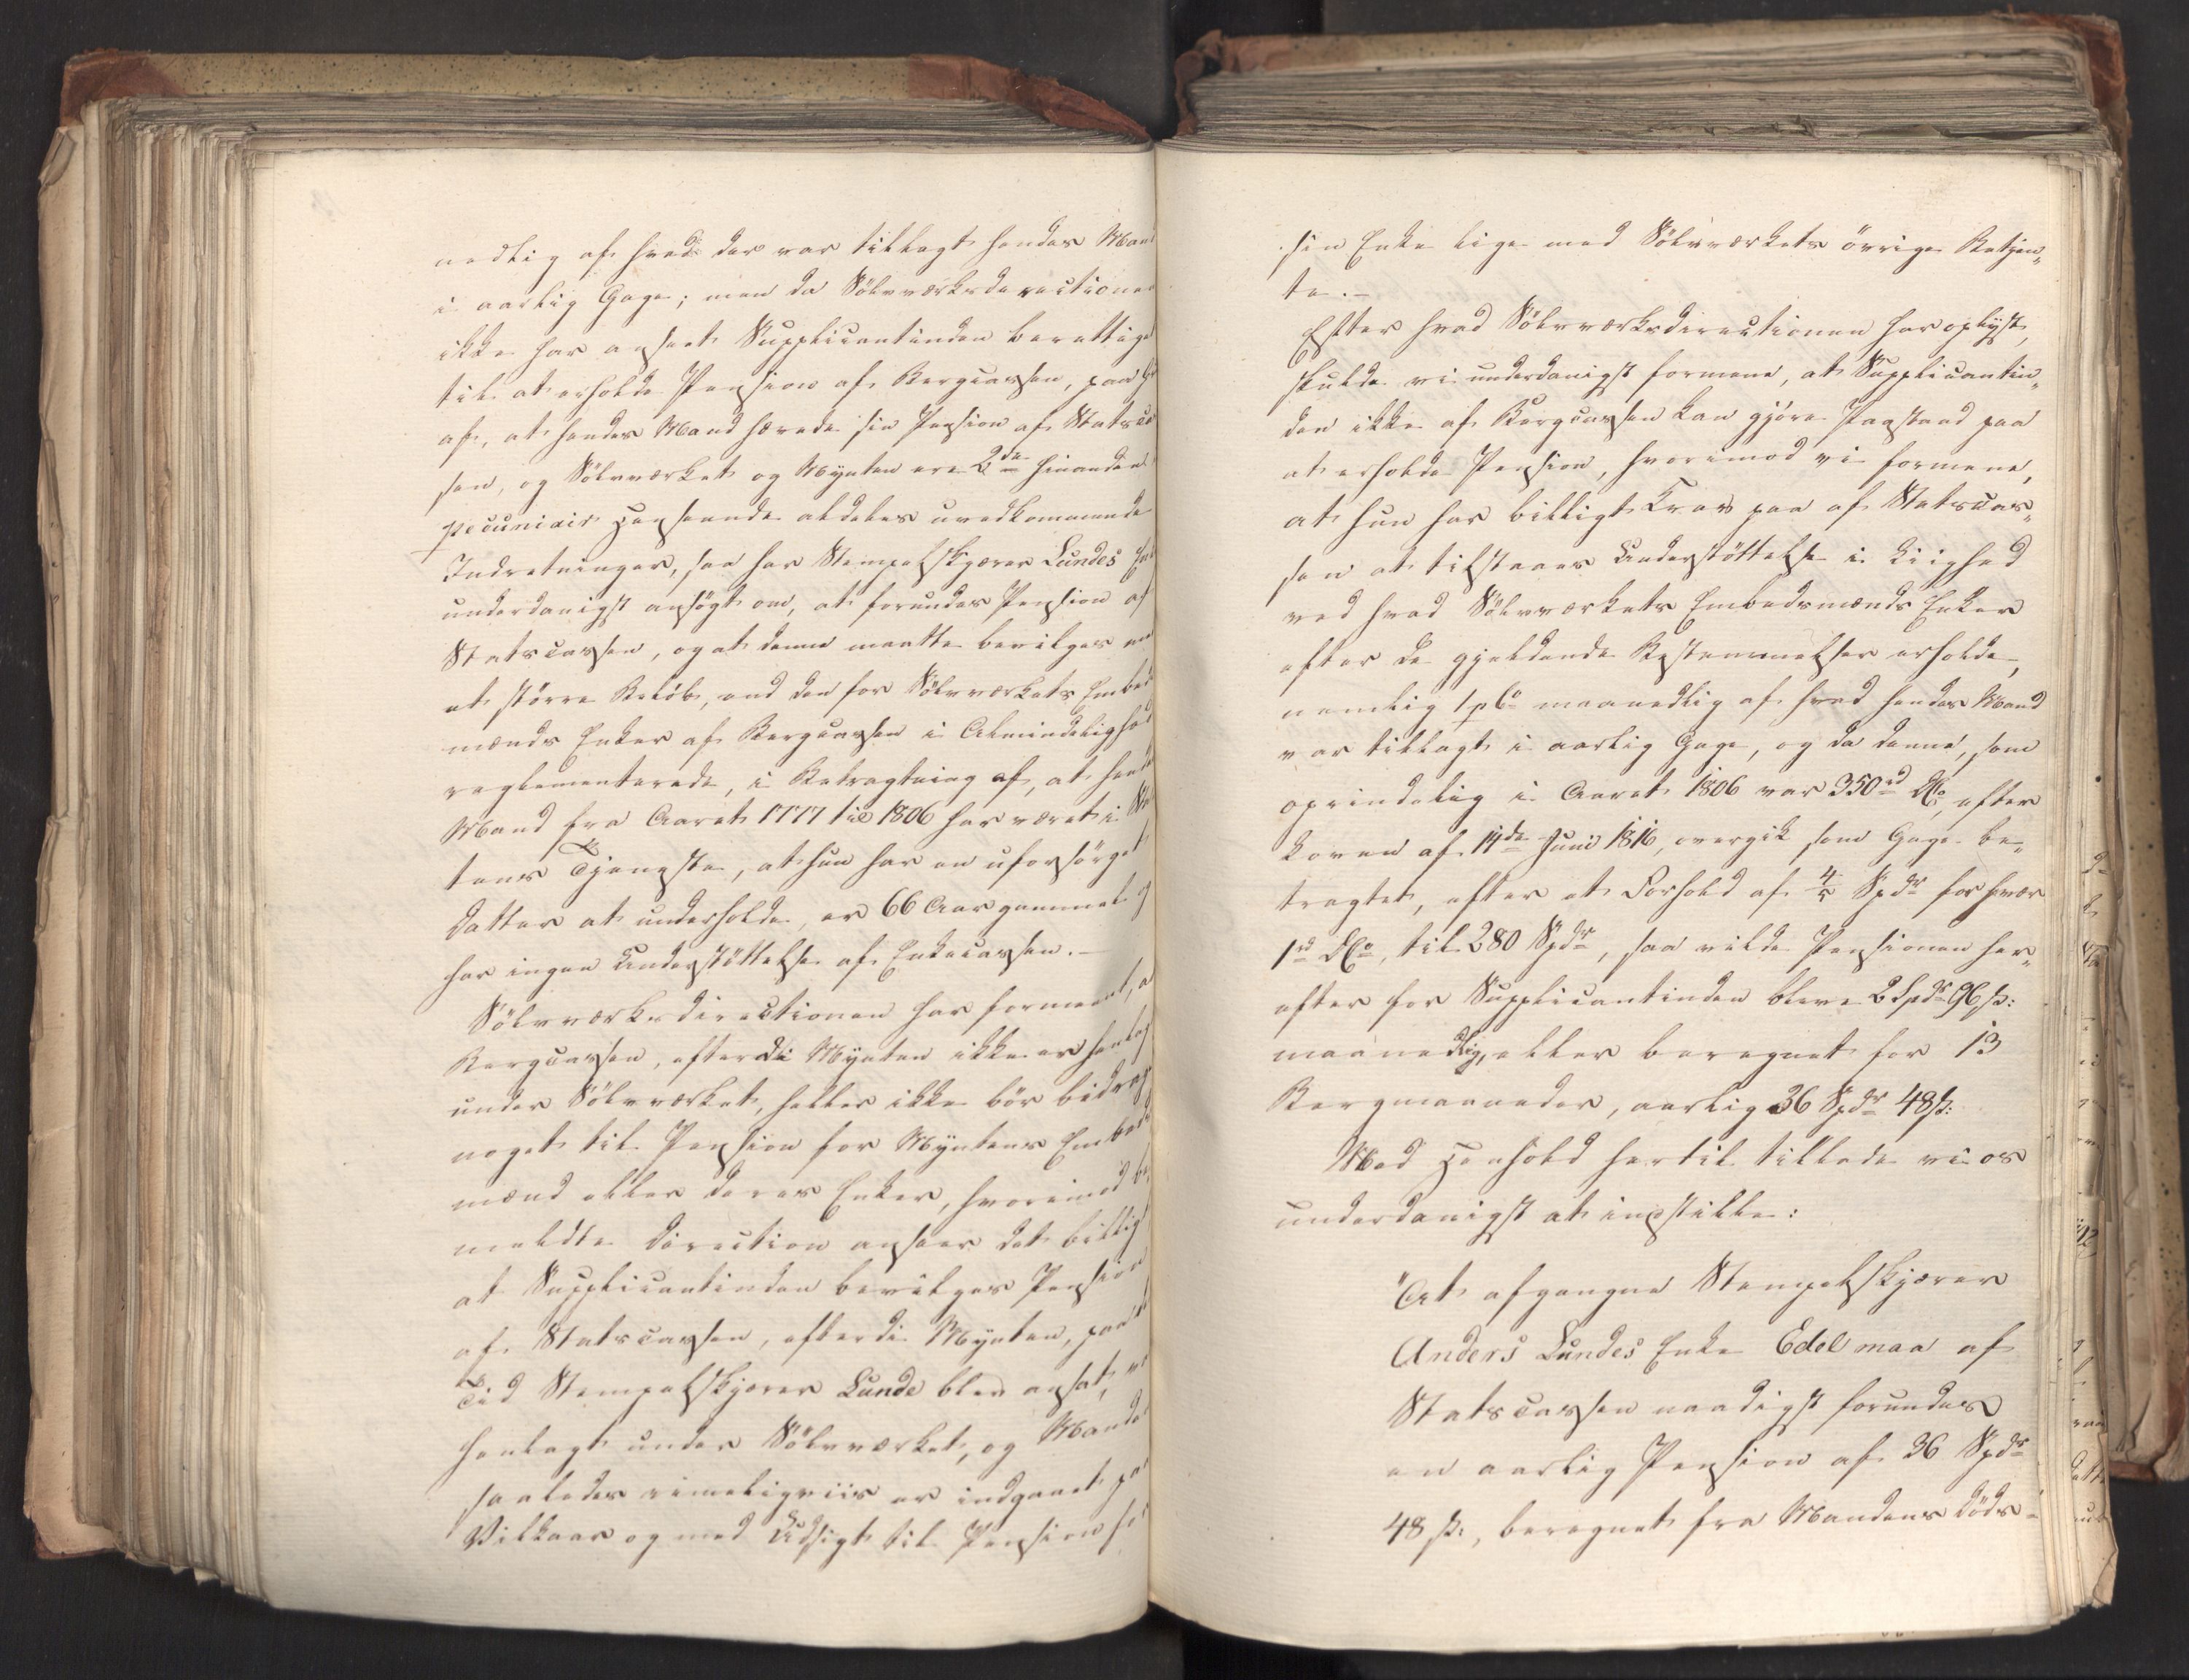 nedlig af hvad der var tillagt hendes Mand
i aarlig Gage; men da Sölvværksdirectionen
ikke har anseet Supplicantinden berettiget
til at erholde Pension af Bergcassen, paa Gr
af, at hendes Mand hævede sin Pension af Statscas
sen, og Sölvværket og Mynten ere 2de hinanden
pecuniair Henseende aldeles uvedkommende
Indretninger, saa har Stempelskjærer Lundes Enke
underdanigst ansögt om, at forundes Pension af
Statscassen, og at denne maatte bevilges
et större Belöb, end den for Sölvværkets Embeds
mænds Enker af Bergcassen i Almindelighed
reglementerede, i Betragtning af, at hendes
Mand fra Aaret 1777 til 1806 har været i
tens Tjeneste, at hun har en uforsörget
Datter at underholde, er 66 Aar gammel og
har ingen Understöttelse af Enkecassen.-
Sölvværksdirectionen har formeent, a
Bergcassen, efterdi Mynten ikke er henlagt
under Sölvværket, heller ikke bör bidrage
noget til Pension for Myntens Embeds
mænd eller deres Enker, hvorimod be
meldte Direction anseer det billigt
at Supplicantinden bevilges Pension
af Statscassen, efterdi Mynten, paa
Tid Stempelskjærer Lunde blev ansat,
henlagt under Sölvværket, og Manden
saaledes rimeligviis er indgaaet paa
Vilkaar og med Udsigt til Pension for
sin Enke lige med Sölvværkets övrige Betjen„
te.-
Efter hvad Sölvværksdirectionen har oplyst,
skulde vi underdanigst formene, at Supplicantin„
den ikke af Bergcassen kan gjöre Paastand paa
at erholde Pension, hvorimod vi formene,
at hun har billigt Krav paa af Statscas„
sen at tilstaaes Understöttelse i Liighed
ved hvad Sölvværkets Embedsmænds Enker
efter de gjeldende Bestemmelser erholde,
nemlig 1 pCt maanedlig af hvad hendes Mand
var tillagt i aarlig Gage, og da denne, som
oprindelig i Aaret 1806 var 350 rd DCo, efter
Loven af 14de Juni 1816, overgik som Gage be„
tragtet, efter et Forhold af 4/5 Spdr for hver
1 rd DCo, til 280 Spdr, saa vilde Pensionen her„
efter for Supplicantinden blive 2 Spdr 96 s:
maanedlig, eller beregnet for 13
Bergmaaneder, aarlig 36 Spdr 48 s:
Med Henhold hertil tillade vi os
underdanigst at indstille:
"At afgangne Stempelskjærer
Anders Lundes Enke Edel maa af
Statscassen naadigst forundes
en aarlig Pension af 36 Spdr
48 s:, beregnet fra Mandens Döds-